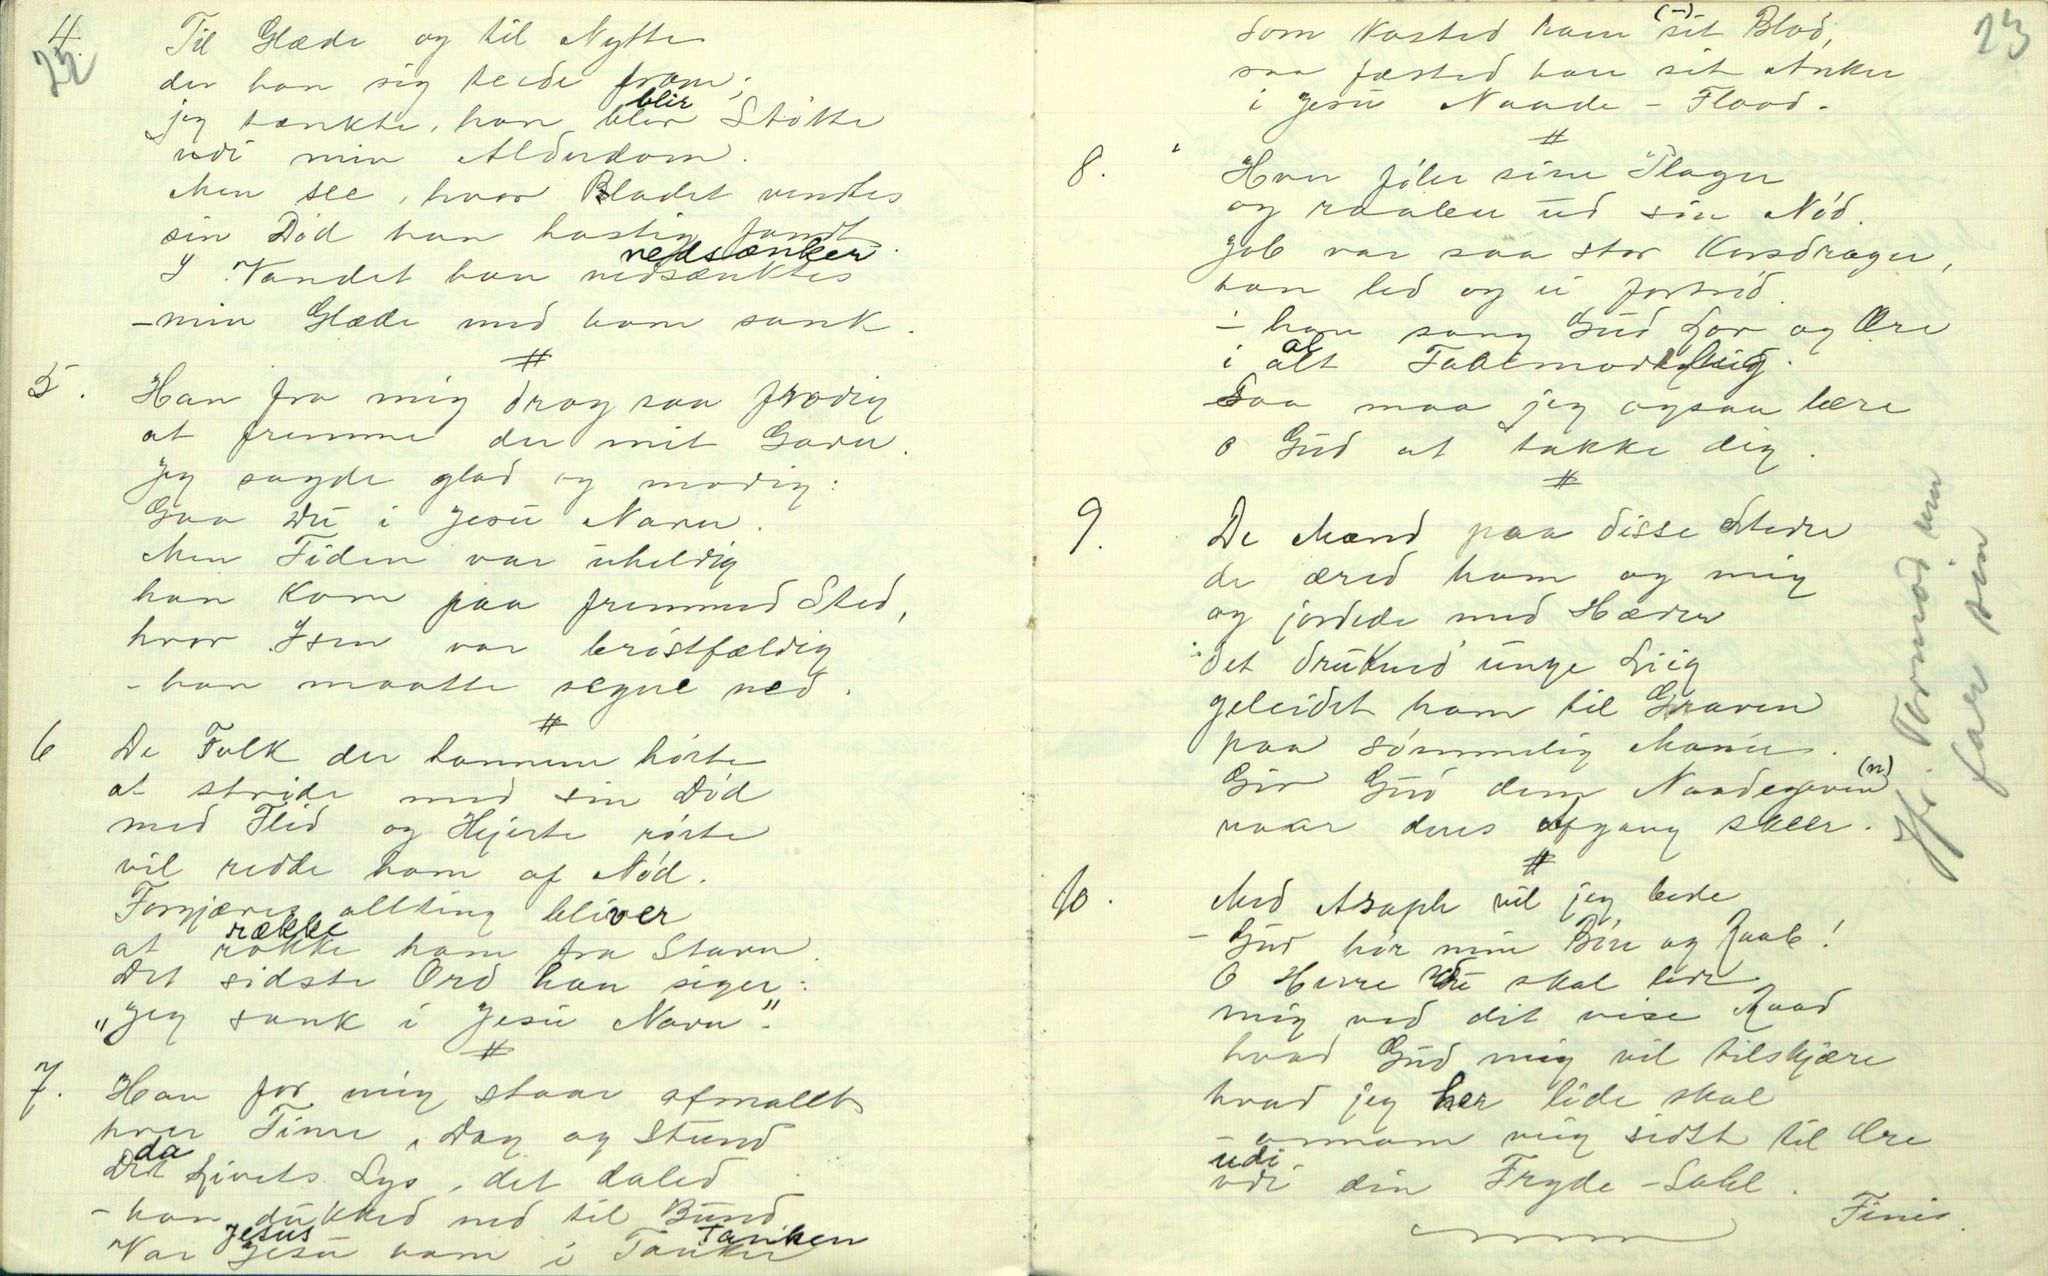 22
4. Til Glæde og til Nytte
der han sig teede from;
blir
jeg tænkte, han blev Støtte
udi min Alderdom.
Men see, hvor Bladet vendtes
sin Død han hastig fandt.
nedsænker
I Vandet han nedsænktes
- min Glæde med ham sank.
#
5. Han fra mig drog saa frodig
at fremme der mit Gavn.
Jeg sagde glad og modig:
Gaa Du i Jesu Navn.
Men Tiden var uheldig
han kom paa fremmed Sted,
hvor Isen var brøstfældig
- han maatte segne ned.
#
6 De Folk der hannem hørte
at stride med sin Død
med Flid og Hjerte rørte
vil redde ham af Nød.
Forgjæves allting bliver
række
at række ham fra Stavn.
Det sidste Ord han siger:
"Jeg sank i Jesu Navn".
#
7. Han for mig staar afmallet
hver Time, Dag og Stund
da
Det Livets Lys, det daled
- han dukked ned til Bund
Jesus Tanken
Var Jesu ham i Tanker
23
(-)
som kosted ham sit Blod,
saa fæsted han sit Anker
i Jesu Naade-Flood.
#
8. Hver føler sine Plager
og raaber ud sin Nød.
Job var saa stor Korsdrager,
han led og ei fortrød.
- han sang Gud Lov og Ære
al
i alt Taalmodelig.
Saa maa jeg ogsaa lære
o Gud at takke dig.
#
9. De Mænd paa disse Steder
de æred ham og mig
og jordede med Hæder
det drukned' unge Liig
geleidet ham til Graven
paa sømmelig Maneer.
(n)
Giv Gud dem Naadegaven
naar deres Afgang skeer.
#
10. Med Asaph vil jeg bede
- Gud hør min Bøn og Raab!
O Herre Du skal lede
mig ved dit vise Raad
hvad Gud mig vil tilskjære
hvad jeg her lide skal
- annam mig sidst til Ære
udi
udi din Fryde-Sahl.
Finis.
Tormod
far sin